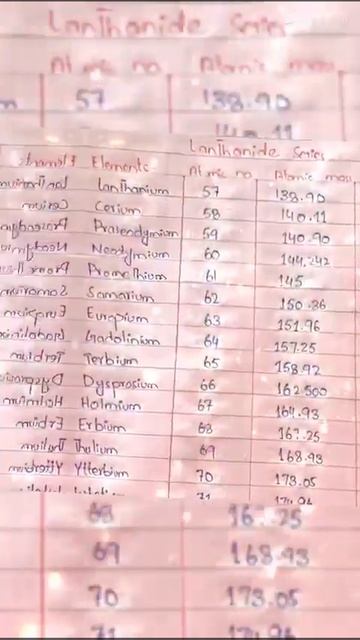 Lanthanide Series
At mic no Atomic mass
57 138.90
140.11
Lanthanide Series
Elements At mic no Atomic mass
Lanthanium 57 138.90
Cerium 58 140.11
Prasendymium 59 140.90
Neodymium 60 144.242
Promethium 61 145
Samarium 62 150.36
Europium 63 151.96
Gadolinium 64 157.25
Terbium 65 158.92
Dysprosium 66 162.500
Holmium 67 164.93
Erbium 68 167.25
Thulium 69 168.93
Ytterbium 70 173.05
71 174.96
68 167.25
69 168.93
70 173.05
71 174.96